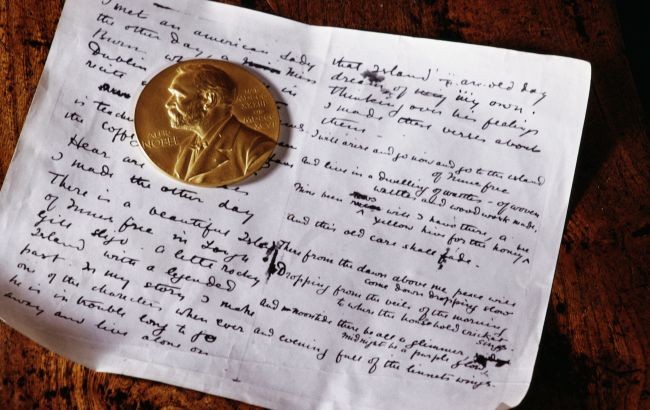 I met an american Lady
the other day, a Miss
Burn
Dublin
is teach
the coffe
Hear are
I made the other day
There is a beautiful Island
of Innis free in Lough
Gill Sligo. A little rocky
Island with a legended
past. In my story I make
one of the characters when ever
he is in trouble long to go
away and live alone on
ALFR.
NOBEL
that Island – an old day
dream of my own.
Thinking over his feelings
I made these verses about
them –
I will arise and go now and go to the island
of Innis free
and live in a dwelling of wattles – of woven
wattles and wood work made,
Nine bean rows will I have there, a
yellow hive for the honey
And this old care shall fade.
There from the dawn above me peace will
come down dropping slow
Dropping from the veils of the morning
to where the household cricket
sings
And noontide there be all a glimmer,
midnight be a purple glow
and evening full of the linnets wings.